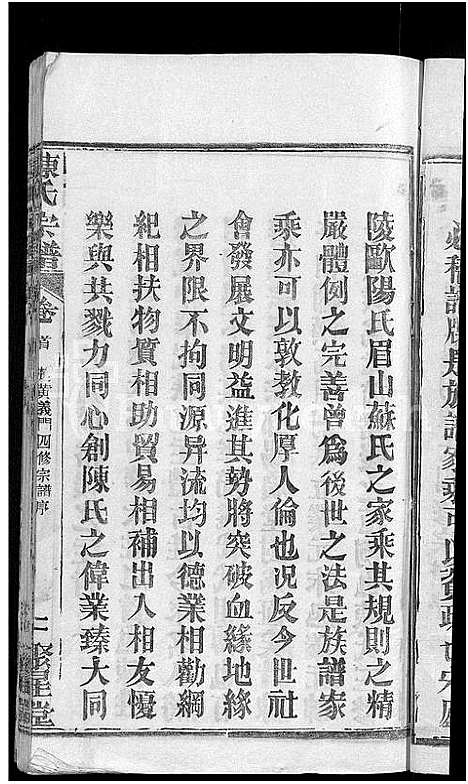 陵歐陽氏眉山蘇氏之家乘其規則之精
嚴體例之完善曾爲後世之法是族譜家
乘亦可以敦教化厚人倫也况反今世社
會發展文明益進其勢將突破血緣地緣
之界限不拘同源异流均以德業相勸綱
紀相扶物質相助貿易相補出入相友憂
樂與共戮力同心創陳氏之偉業臻大同
陳氏宗譜
卷首
黄義門四修宗譜序
二
聚星堂